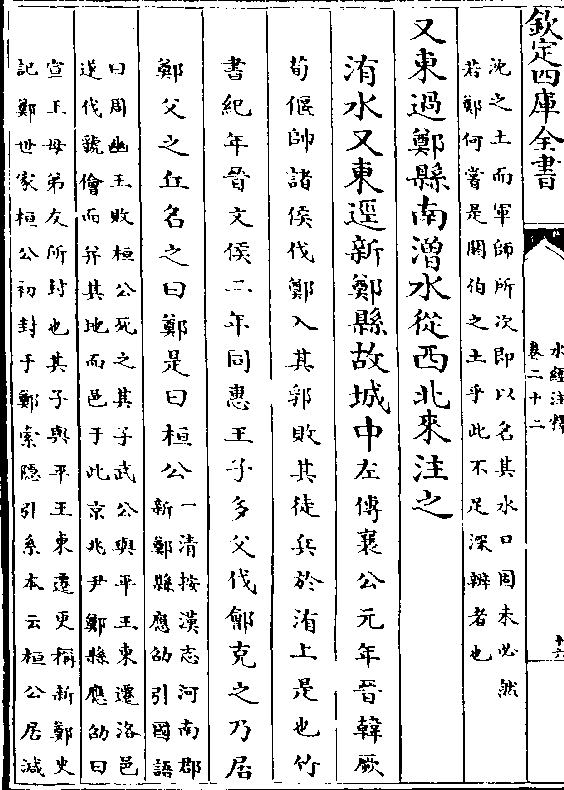 欽定四庫全書
水經注釋
卷二十二
十六
沈之土而軍師所次即以名其水口固未必然
若鄭何嘗是闕伯之土乎此不足深辨者也
又東過鄭縣南潧水從西北來注之
洧水又東逕新鄭縣故城中左傳襄公元年晉韓厥
荀偃帥諸侯伐鄭入其郛敗其徒兵於洧上是也竹
書紀年晉文侯二年同惠王子多父伐鄶克之乃居
鄭父之丘名之曰鄭是曰桓公
一清按漢志河南郡
新鄭縣應劭引國語
曰周幽王敗桓公死之其子武公與平王東遷洛邑
遂伐虢儈而并其地而邑于此京兆尹鄭縣應劭曰
宣王母弟友所封也其子與平王東遷更稱新鄭史
記鄭世家桓公初封于鄭索隱引系本云桓公居減